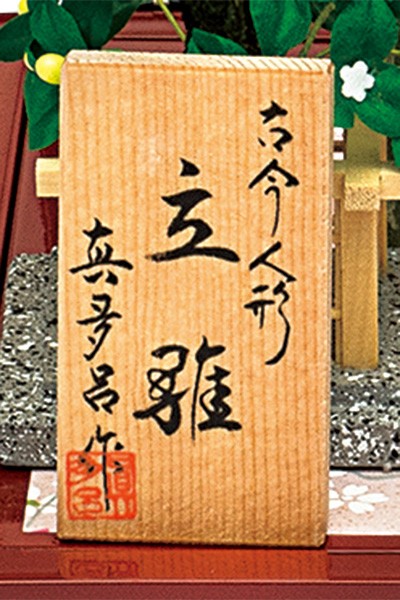 古今人形
立雛
真多呂作